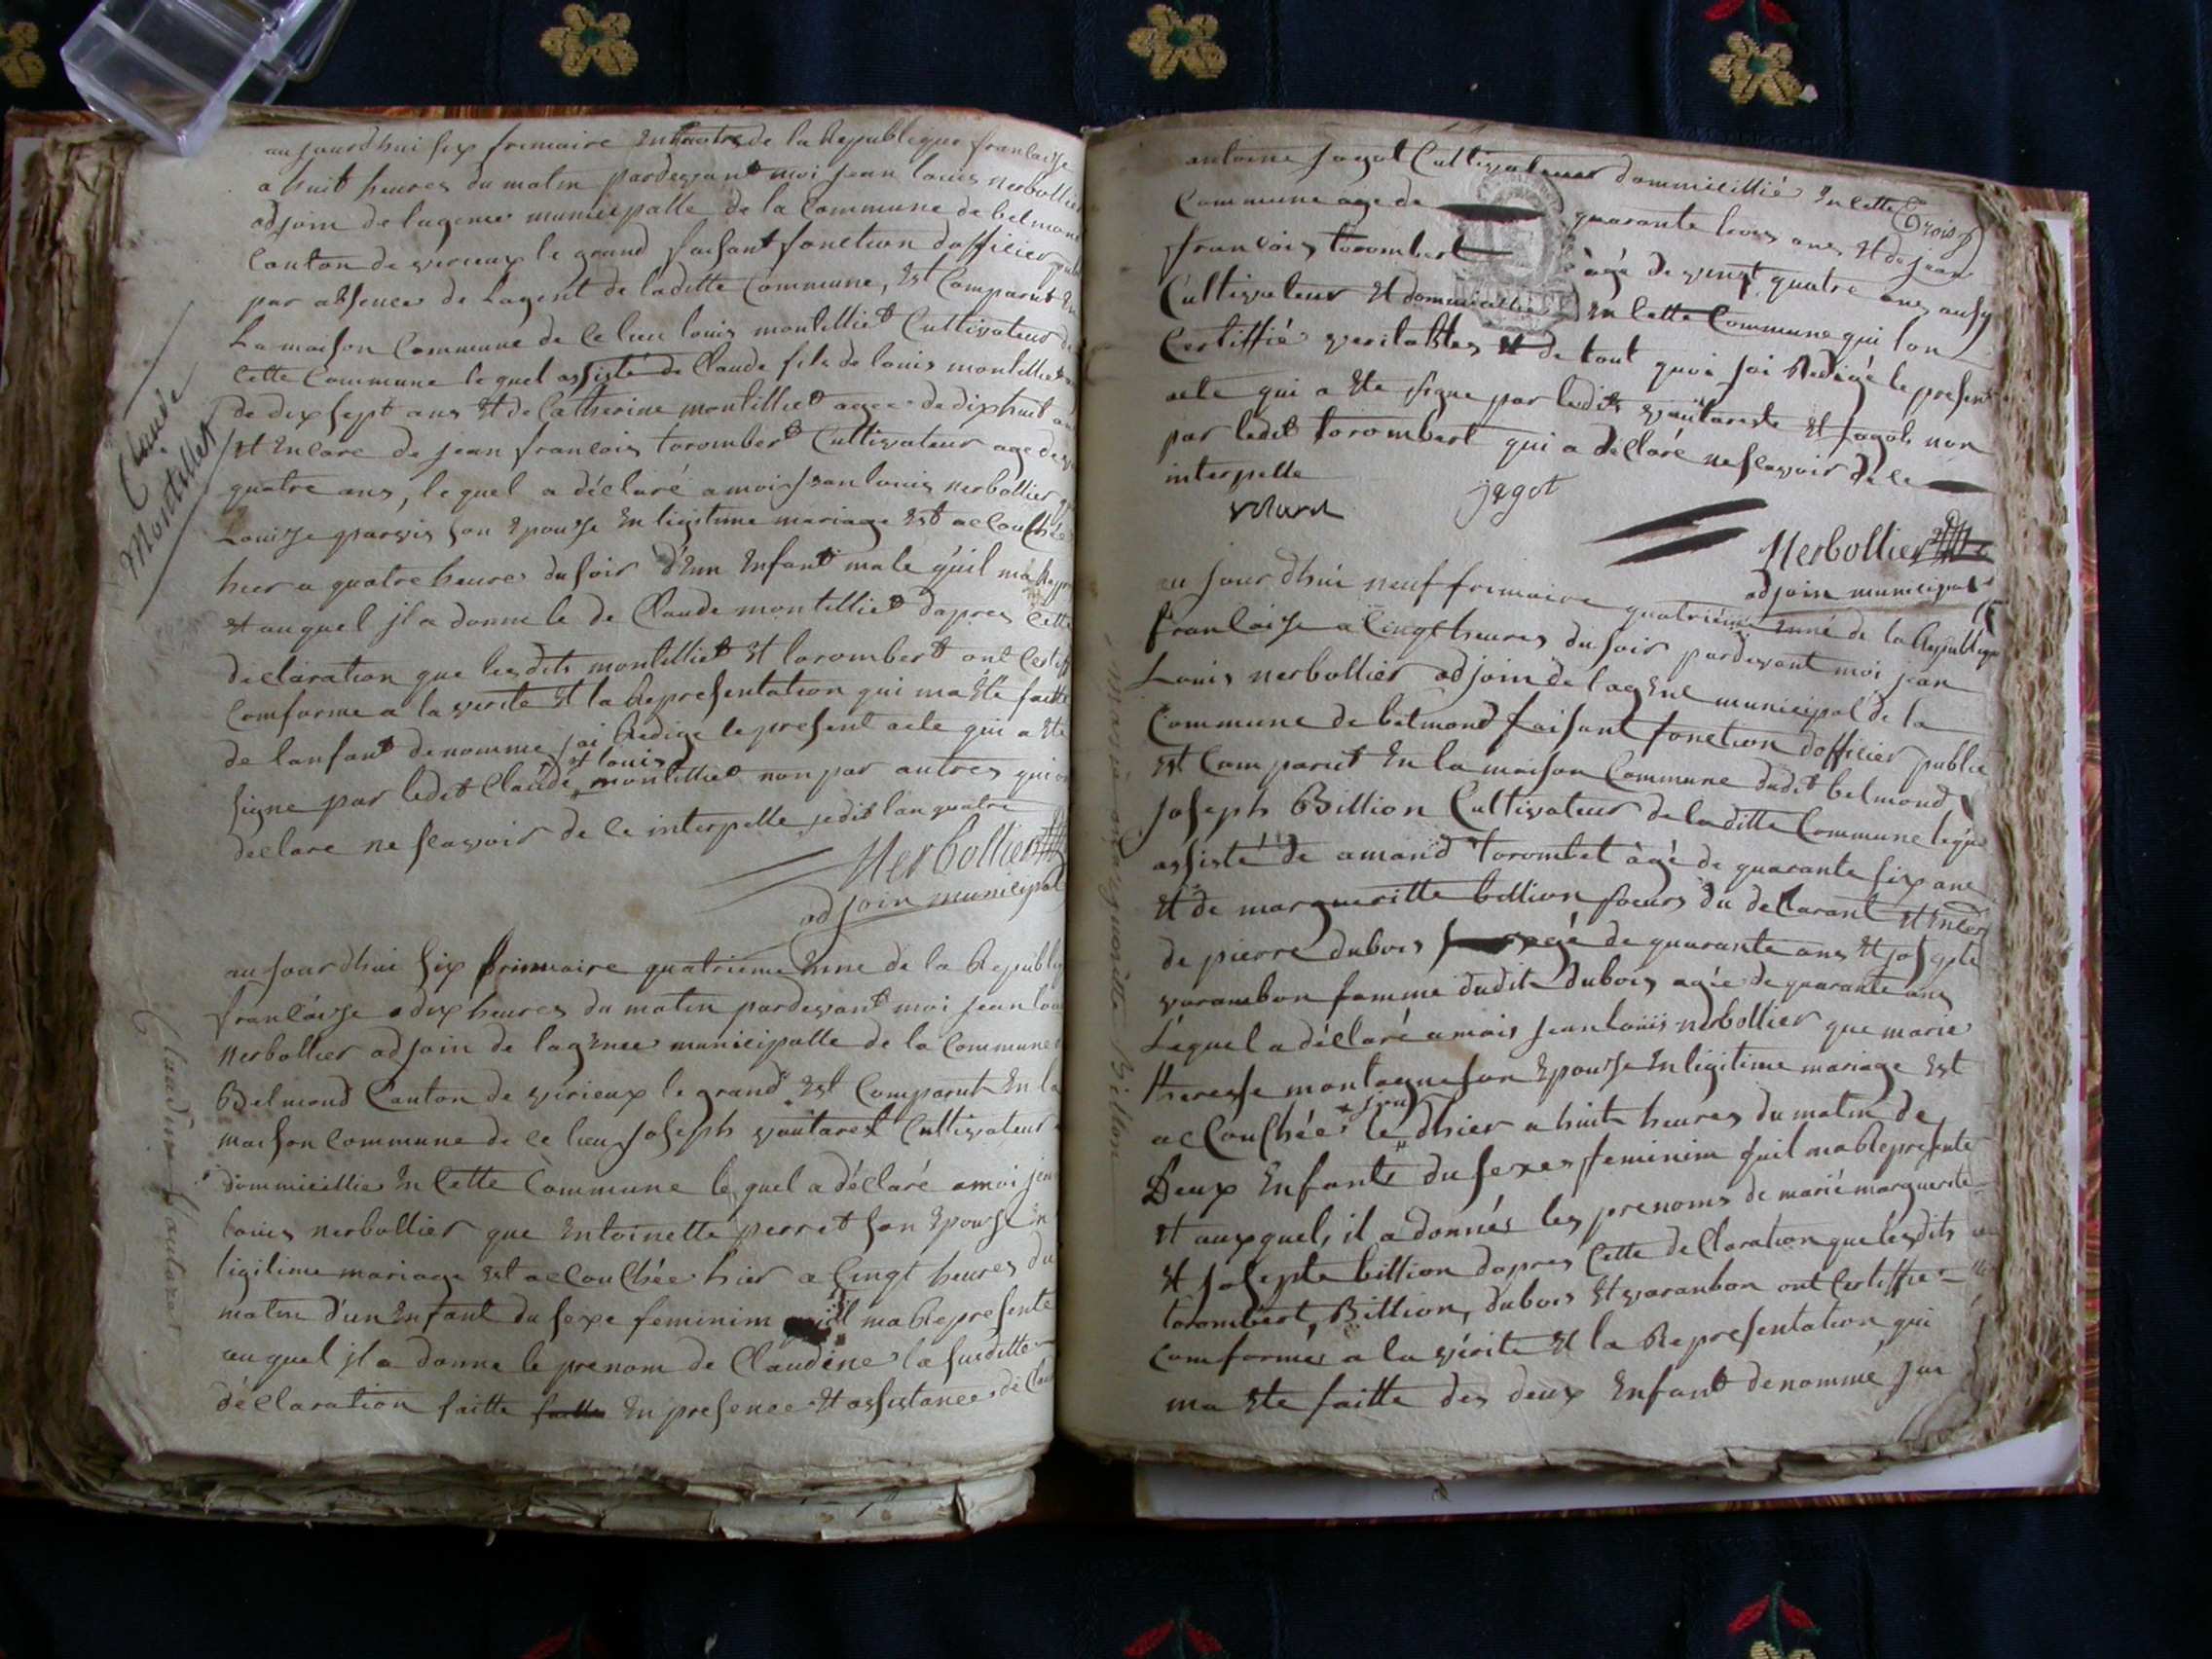 Claude
Montillet
aujourdhui six frimaire de la Republique francaise
a huit heures du matin pardevant moi jean louis nerbollier
adjoin de lagence municipalle de la Commune de belmond
Canton de virieux le grand faisant fonction dofficier
par absence de Lagent de laditte Commune, Est Comparut En
La maison Commune de Ce lieu louis montilliet Cultivateur de
Cette Commune lequel assisté de Claude fils de louis montilliet
de dix sept ans Et de Catherine montilliet agee de dixhuit
Et Encore de jean francois torombert Cultivateur age de
quatre ans, lequel a déclaré a moi jean louis nerbollier
Louise son Epouse En ligitime mariage Est accouchée
hier a quatre heures du soir d'Enn Enfant male qu'il ma
Et auquel jl a donne le de Claude montilliet dapres Cette
déclaration que lesdits montilliet Et torombert ont
Comforme a la verite Et la Representation qui ma Ete faitte
de lanfant denomme jai Redige le present acte qui a Ete
et louis
signe par ledit Claude montilliet non par autres qui
declare ne scavoir de Ce interpelle jedit lan quatre
Nerbollier
adjoin municipal
Claudine Vautaret
aujourdhui six frimaire quatrieme Enne de la
francaise a dix heures du matin pardevant moi jean
nerbollier adjoin de lagence municipalle de la Commune
Belmond Canton de virieux le grand Est Comparut En la
maison Commune de Ce lieu Joseph vautaret Cultivateur
dommicillie En Cette Commune lequel a déclaré a moi
louis nerbollier que Entoinette perret son Epouse En
ligitime mariage Est accouchée hier a Cinqt heures du
matin d'un Enfant du sexe feminim ma Represente
auquel jl a donne le prenom de Claudine la susditte
déclaration faitte En presence Et assistance de
antoine jagot Cultivateur dommicillié En Cette
trois
Commune age de quarante trois ans Et de jean
francois torombert àgé de vingt quatre ans aussy
Cultivateur Et dommicillie En Cette Commune qui lon
Certiffié veritables Et de tout quoi jai Redigé le present
acte qui a Ete signe par ledit vautaret Et jagot non
par ledit torombert qui a déclaré ne scavoir de Ce
interpelle
jagot
Nerbollier
adjoin municipal
marie marguerite Billion
aujourdhui neuf frimaire quatriéme Enné de la Republique
francaise a Cinqt heures du soir pardevant moi jean
Louis nerbollier adjoin de lagent municipal de la
Commune de belmond faisant fonction dofficier public
Est Comparut En la maison Commune dudit belmond
Joseph Billion Cultivateur de laditte Commune
assisté de amand torombet àgé de quarante six ans
Et de margueritte billion soeurs du declarant Et
de pierre dubois agé de quarante ans Et josepte
varambon famme dudit dubois agée de quarante ans
Lequel a déclaré a mois jean louis nerbollier que marie
theresse montagne son Epouse En ligitime mariage Est
jour
accouchée le dhier a huit heures du matin de
Deux Enfants du sexes feminim quil ma Represente
Et auxquels il a donnés les prenoms de marié marguerite
Et josepte billion dapres Cette declaration que lesdits
torombert, Billion, dubois Et varanbon ont Certiffie
Comformes a la vérite Et la Representation qui
ma Ete faitte des deux Enfant denommé jai